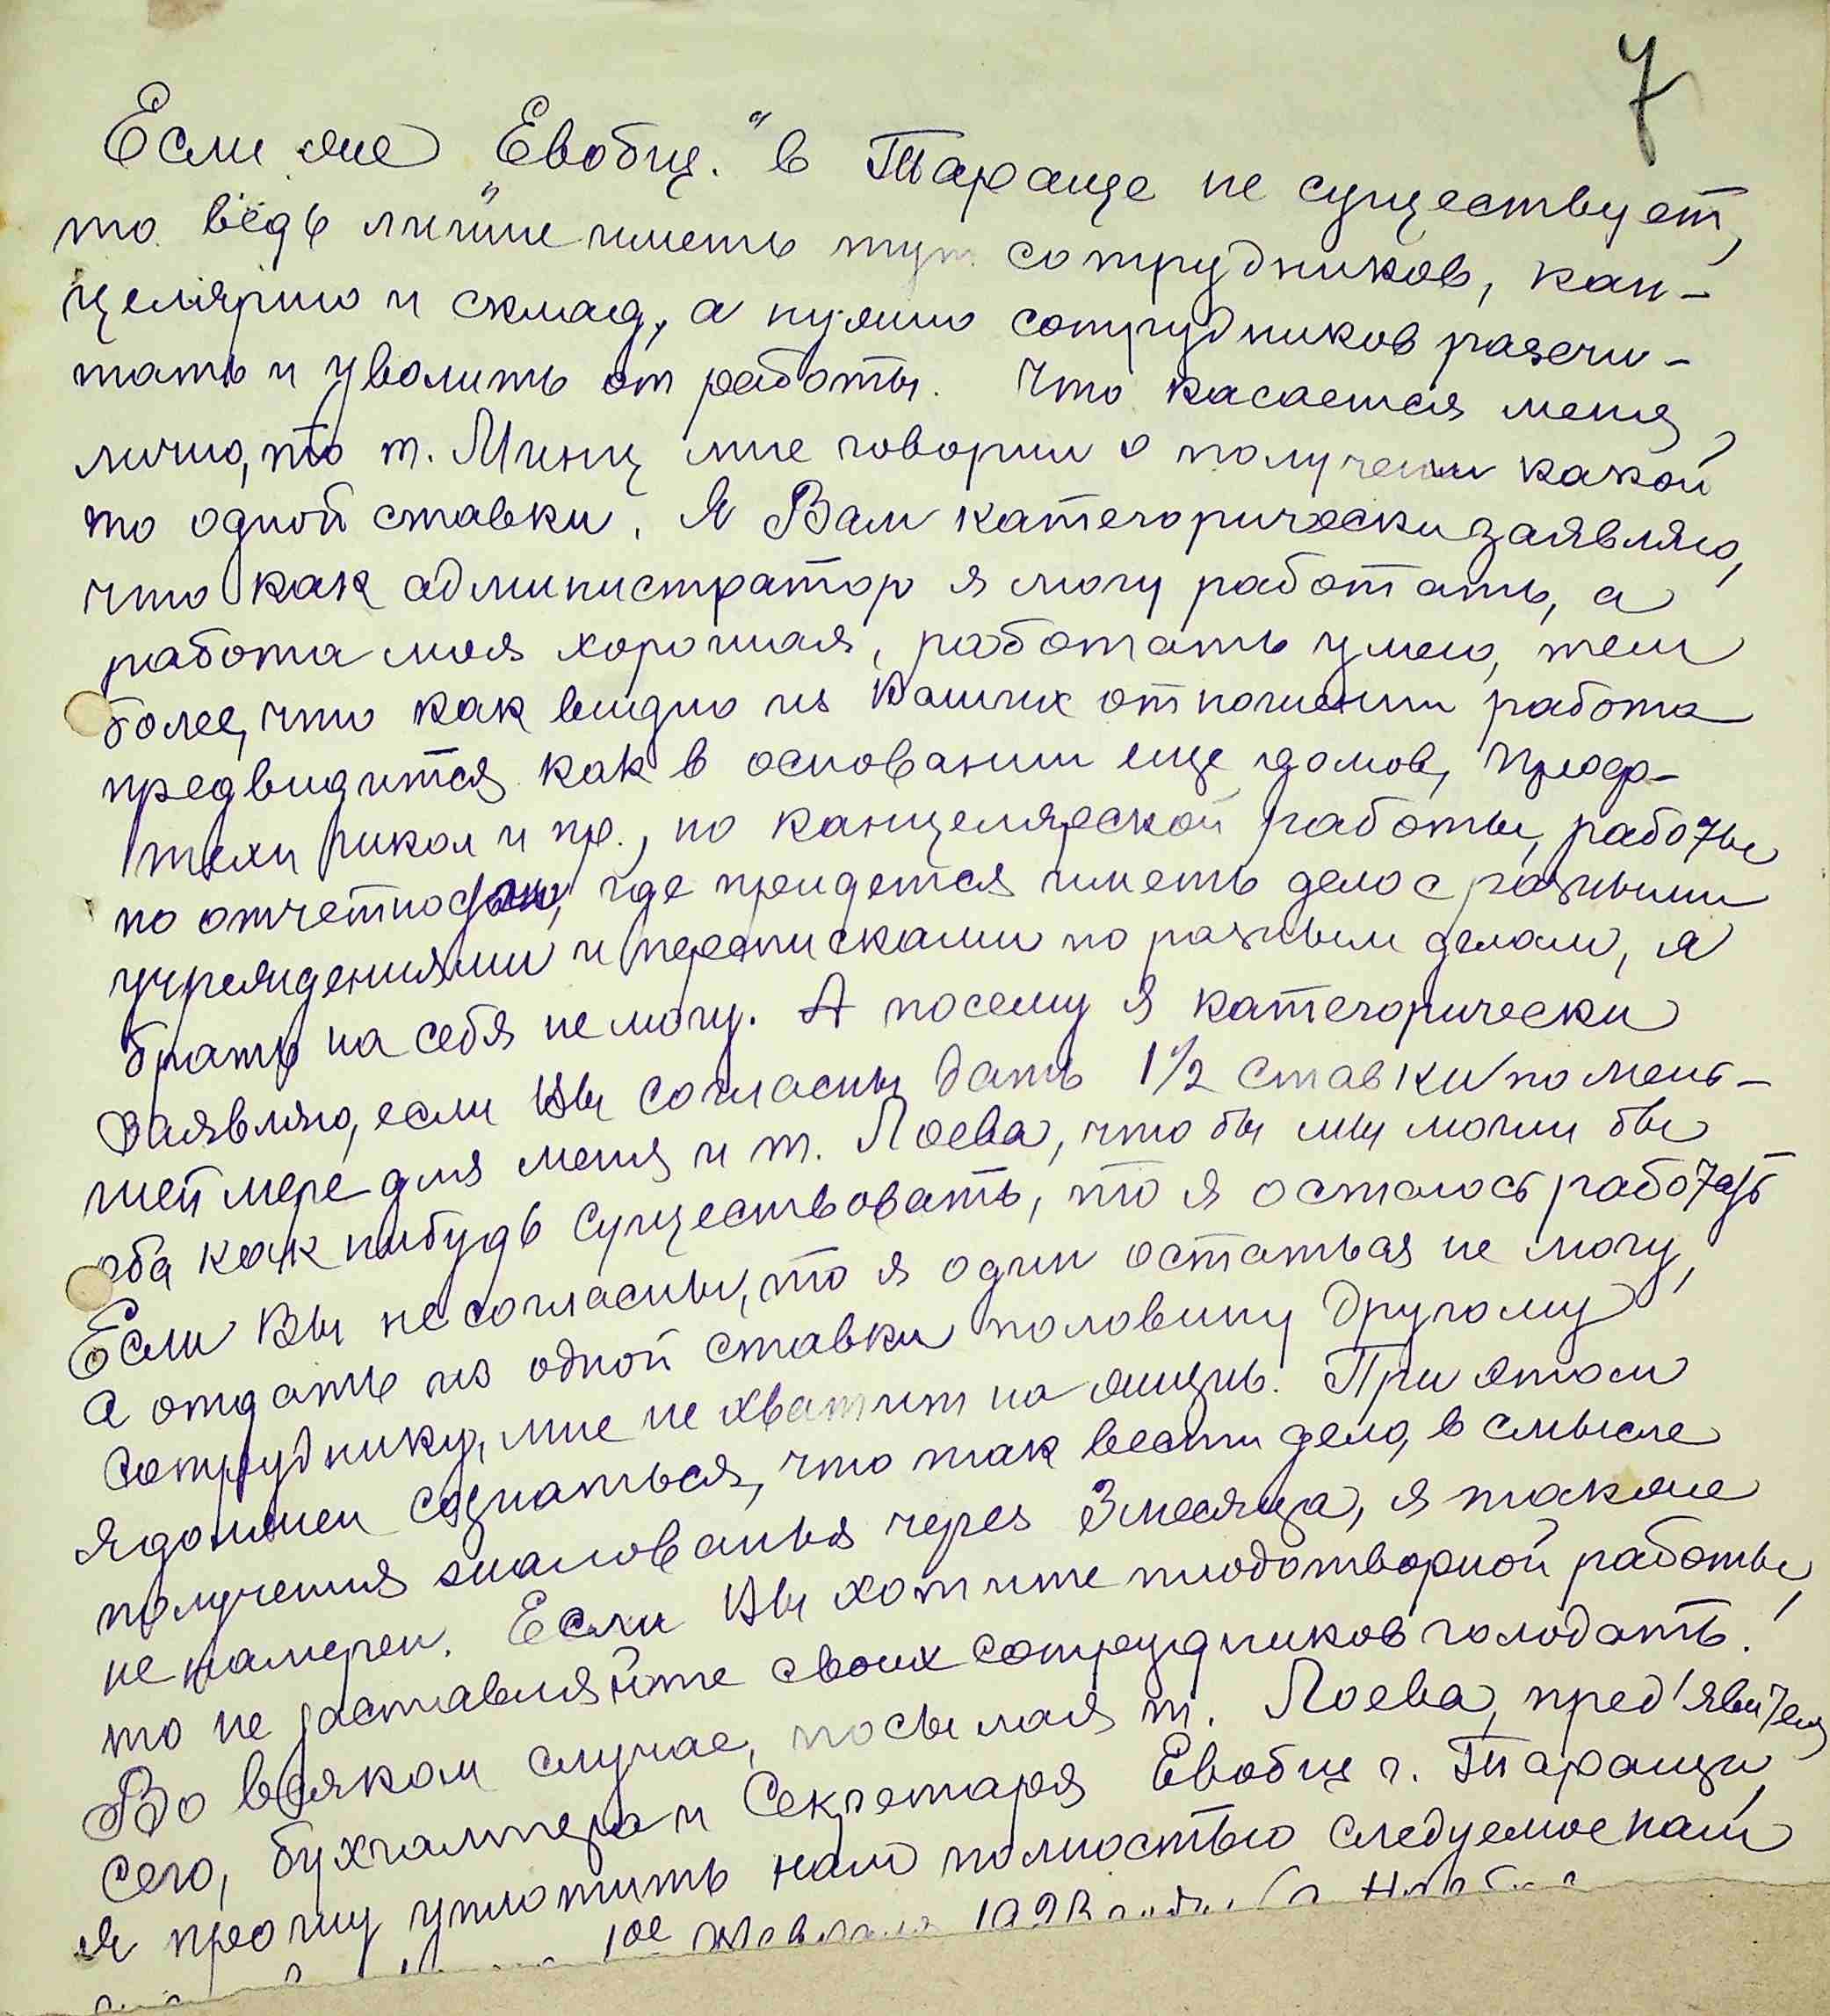 7
Если же „Евобщ." в Тараще не существует,
то ведь лишне иметь тут сотрудников, кан-
целярию и склад, а нужно сотрудников разсчи-
тать и уволить от работы. Что касается меня
лично, то т. Минц мне говорил о получении какой
то одной ставки. Я Вам категорически заявляю,
что как администратор я могу работать, а
работа моя хорошая, работать умею, тем
более, что как видно из Ваших отношении работа
предвидится как в основании еще домов,
школ и пр., по канцелярской работы, работы
по отчетностью, где прийдется иметь дело с разными
учреждениями и переписками по разным делам, я
брать на себя не могу. А посему я категорически
заявляю, если Вы согласны дать 1½ ставки по мень-
шей мере для меня и т. Лоева, что бы мы могли бы
оба как нибудь существовать, то я остаюсь работать
Если Вы не согласны, то я один остаться не могу,
а отдать из одной ставки половину другому
сотруднику, мне не хватит на жизнь. При этом
я должен сознаться, что так вести дело, в смысле
получения жалованья через 3 месяца, я также
не намерен. Если Вы хотите плодотворной работы,
то не заставляйте своих сотрудников голодать.
Во всяком случае, посылая т. Лоева, пред'явителя
сего, бухгалтера и Секретаря Евобщ г. Таращи,
я прошу уплотить нам полностью следуемое нам
1ое